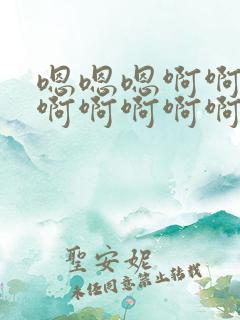 嗯嗯嗯啊啊
啊啊啊啊啊
聖安妮
未经同意禁止转载